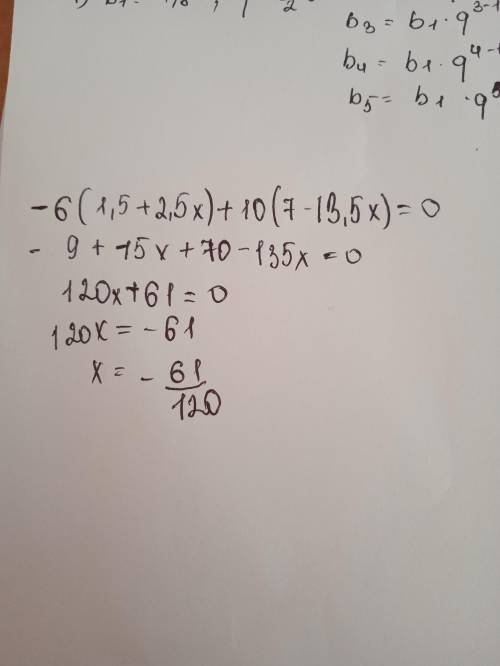 b3 = b1 · q^3-1
b4 = b1 · q^4-
b5 = b1 · q
-6(1,5+2,5x)+10(7-13,5x)=0
- 9 + 15x + 70 - 135x = 0
120x+61=0
120x = - 61
x = - 61/120